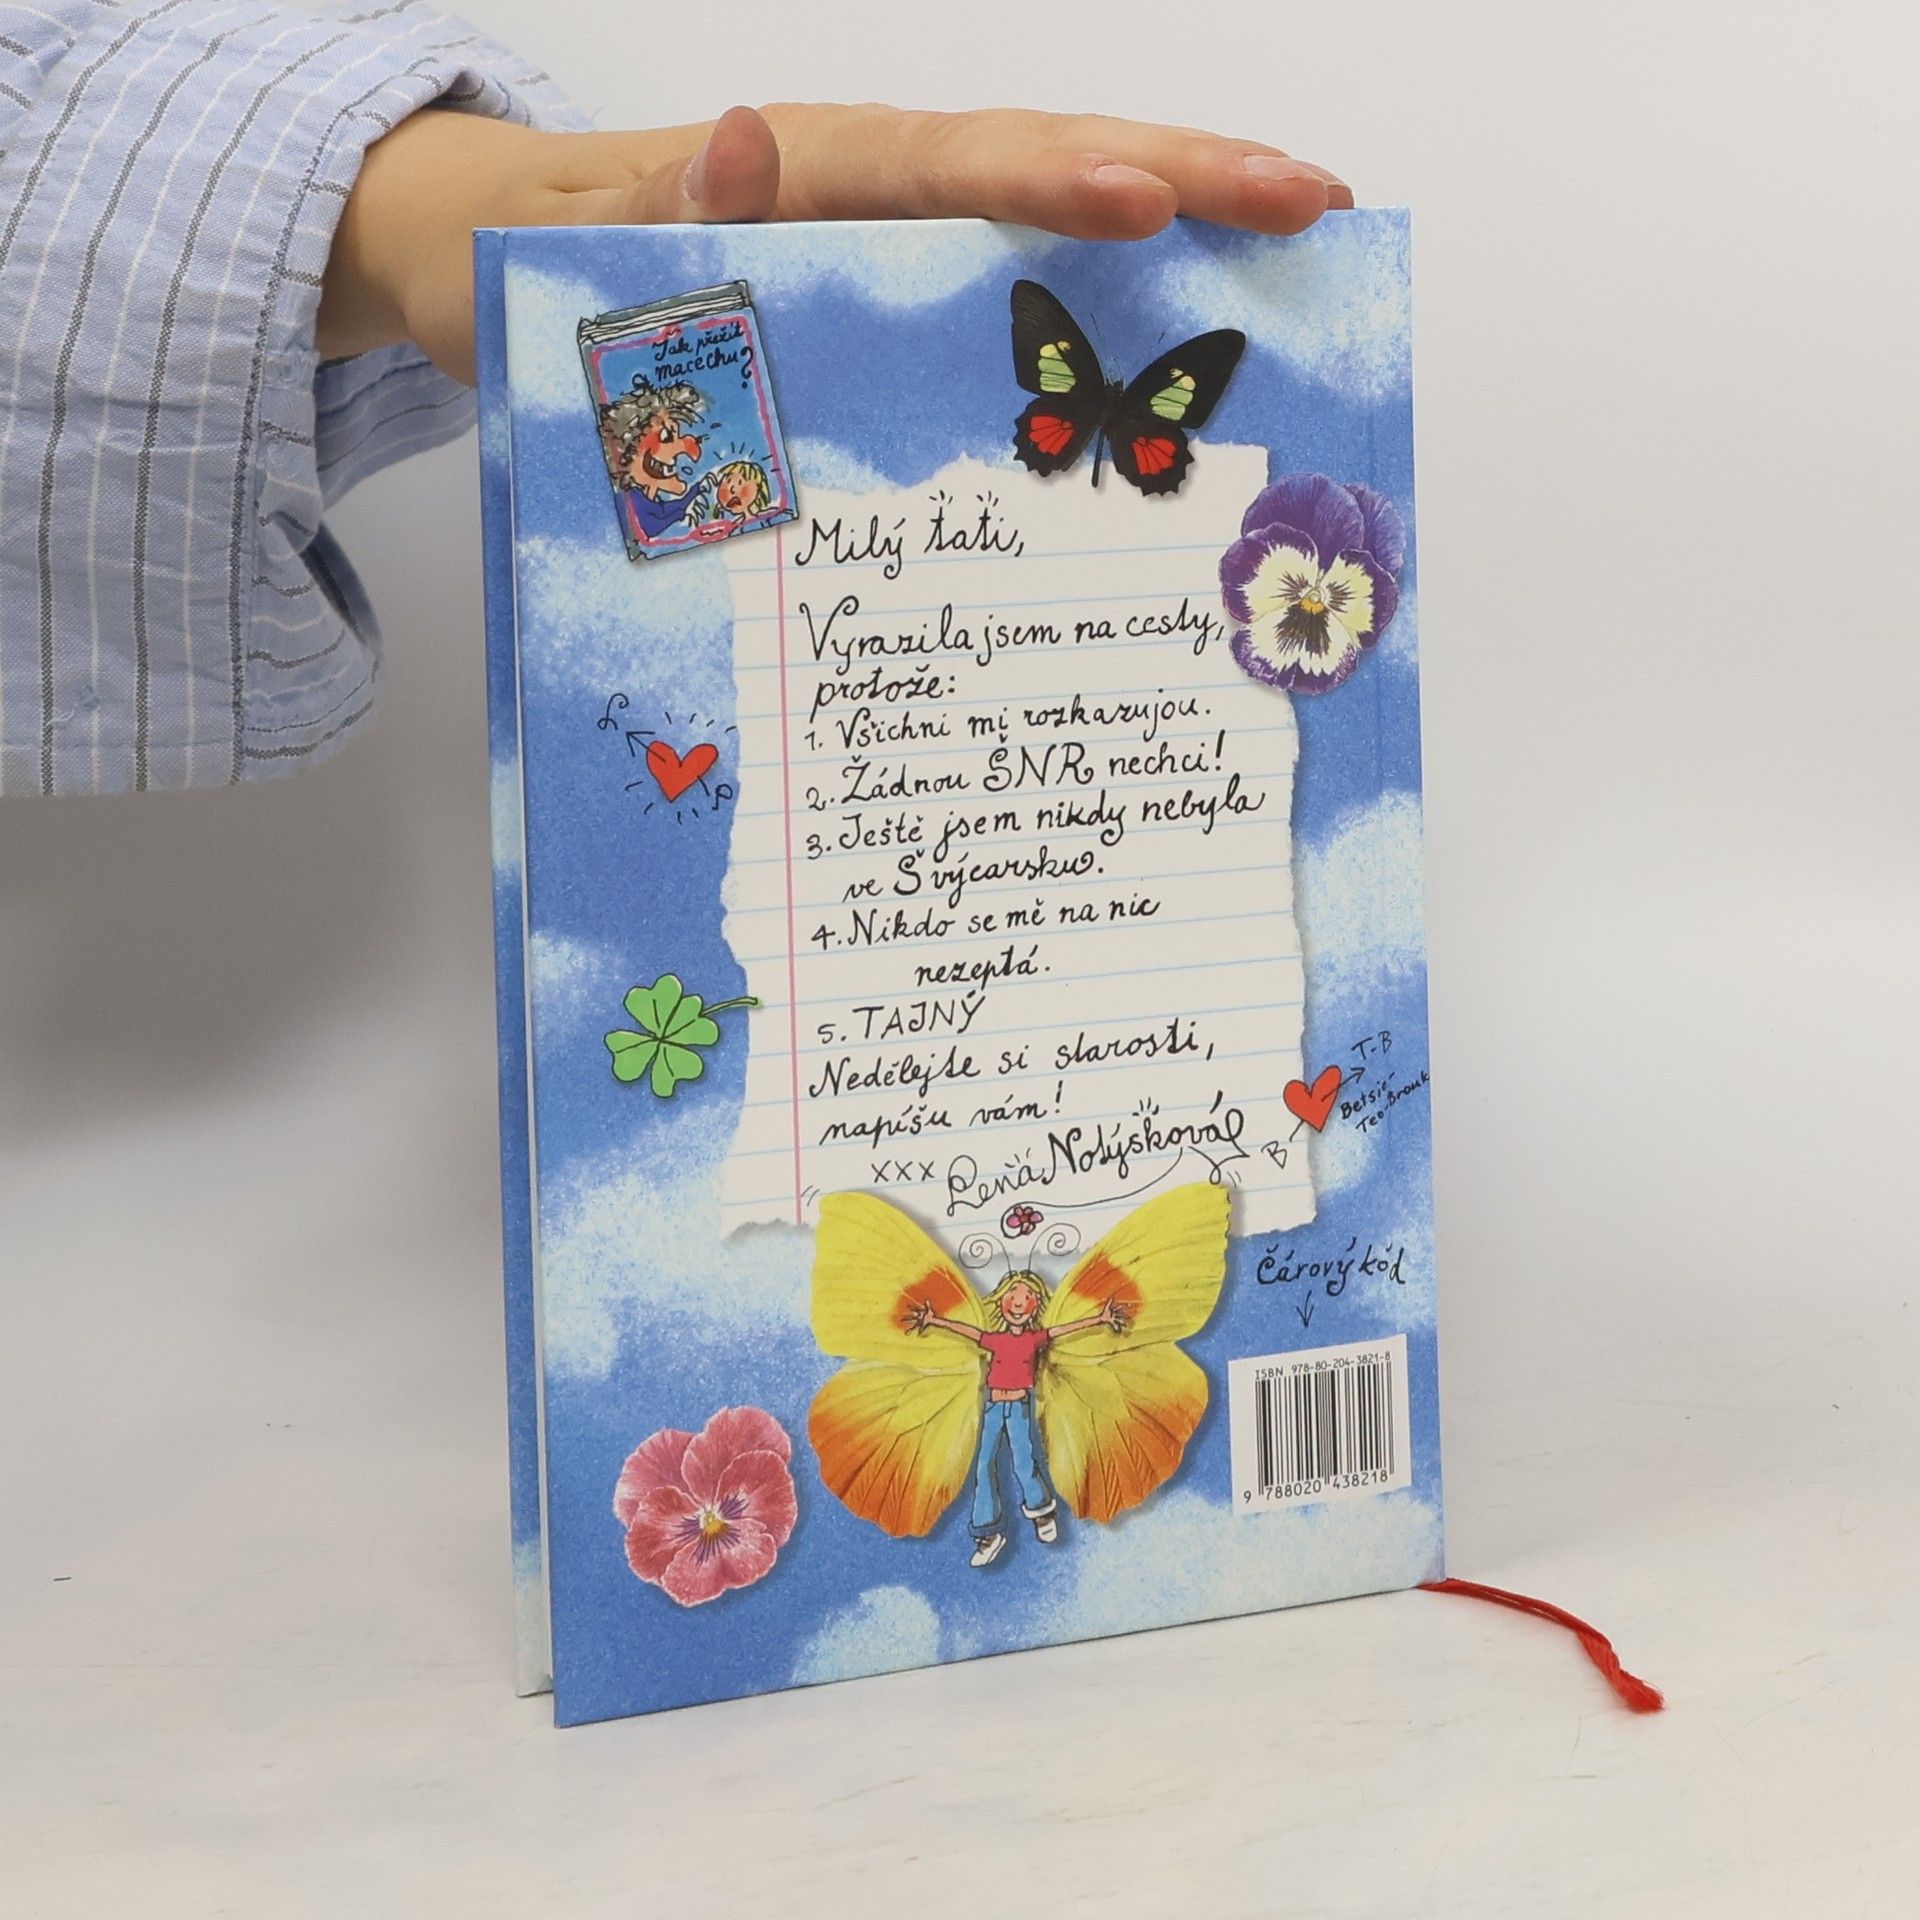 Jak přežít
macechu?
Milý taťi,
Vyrazila jsem na cesty,
protože:
1. Všichni mi rozkazujou.
2. Žádnou ŠNR nechci!
3. Ještě jsem nikdy nebyla
ve Švýcarsku.
4. Nikdo se mě na nic
nezeptá.
5. TAJNÝ
Nedělejte si starosti,
napíšu vám!
xxx Lena Notýsková
T-B
Betsie-
Teo-Brouk
B
Čárový kód
ISBN 978-80-204-3821-8
9 788020 438218